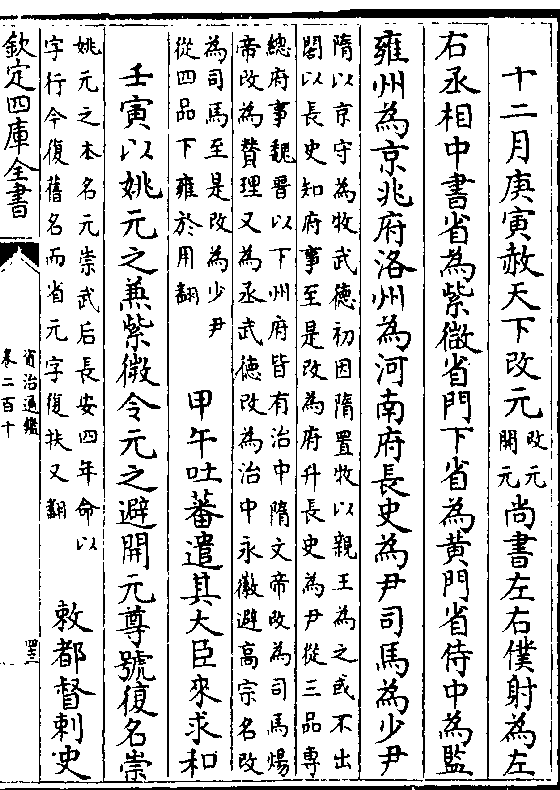 十二月庚寅赦天下改元改元開元尚書左右僕射為左
右丞相中書省為紫微省門下省為黃門省侍中為監
雍州為京兆府洛州為河南府長史為尹司馬為少尹
隋以京守為牧武德初因隋置牧以親王為之或不出
閤以長史知府事至是改為府升長史為尹從三品專
總府事魏晉以下州府皆有治中隋文帝改為司馬煬
帝改為贊理又為丞武德改為治中永徽避高宗名改
為司馬至是改為少尹
從四品下雍於用翻
甲午吐蕃遣其大臣來求和
壬寅以姚元之兼紫微令元之避開元尊號復名崇
姚元之本名元崇武后長安四年命以
字行今復舊名而省元字復扶又翻
敕都督刺史
欽定四庫全書
資治通鑑
卷二百十
四三